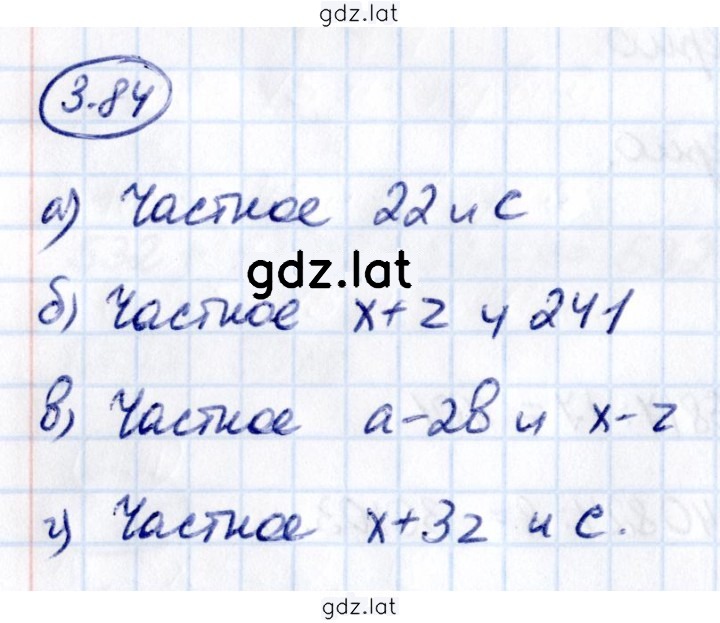 gdz.lat
3.84
а) Частное 22 и с
gdz.lat
б) Частное x+z и 241
в) Частное а-2в и x-z
г) Частное x+3z и с.
gdz.lat